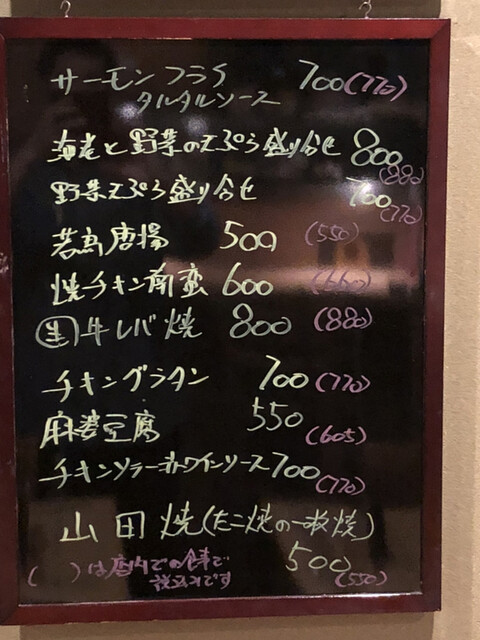 サーモンフライ 700(770)
タルタルソース
海老と野菜の天ぷら盛り合せ 800(880)
野菜天ぷら盛り合せ 700(770)
若鳥唐揚 500(550)
焼チキン南蛮 600(660)
生牛レバ焼 800(880)
チキングラタン 700(770)
麻婆豆腐 550(605)
チキンソテー赤ワインソース 700(770)
山田焼(たこ焼の一枚焼)
500(550)
( )は店内での食事で
税込みです